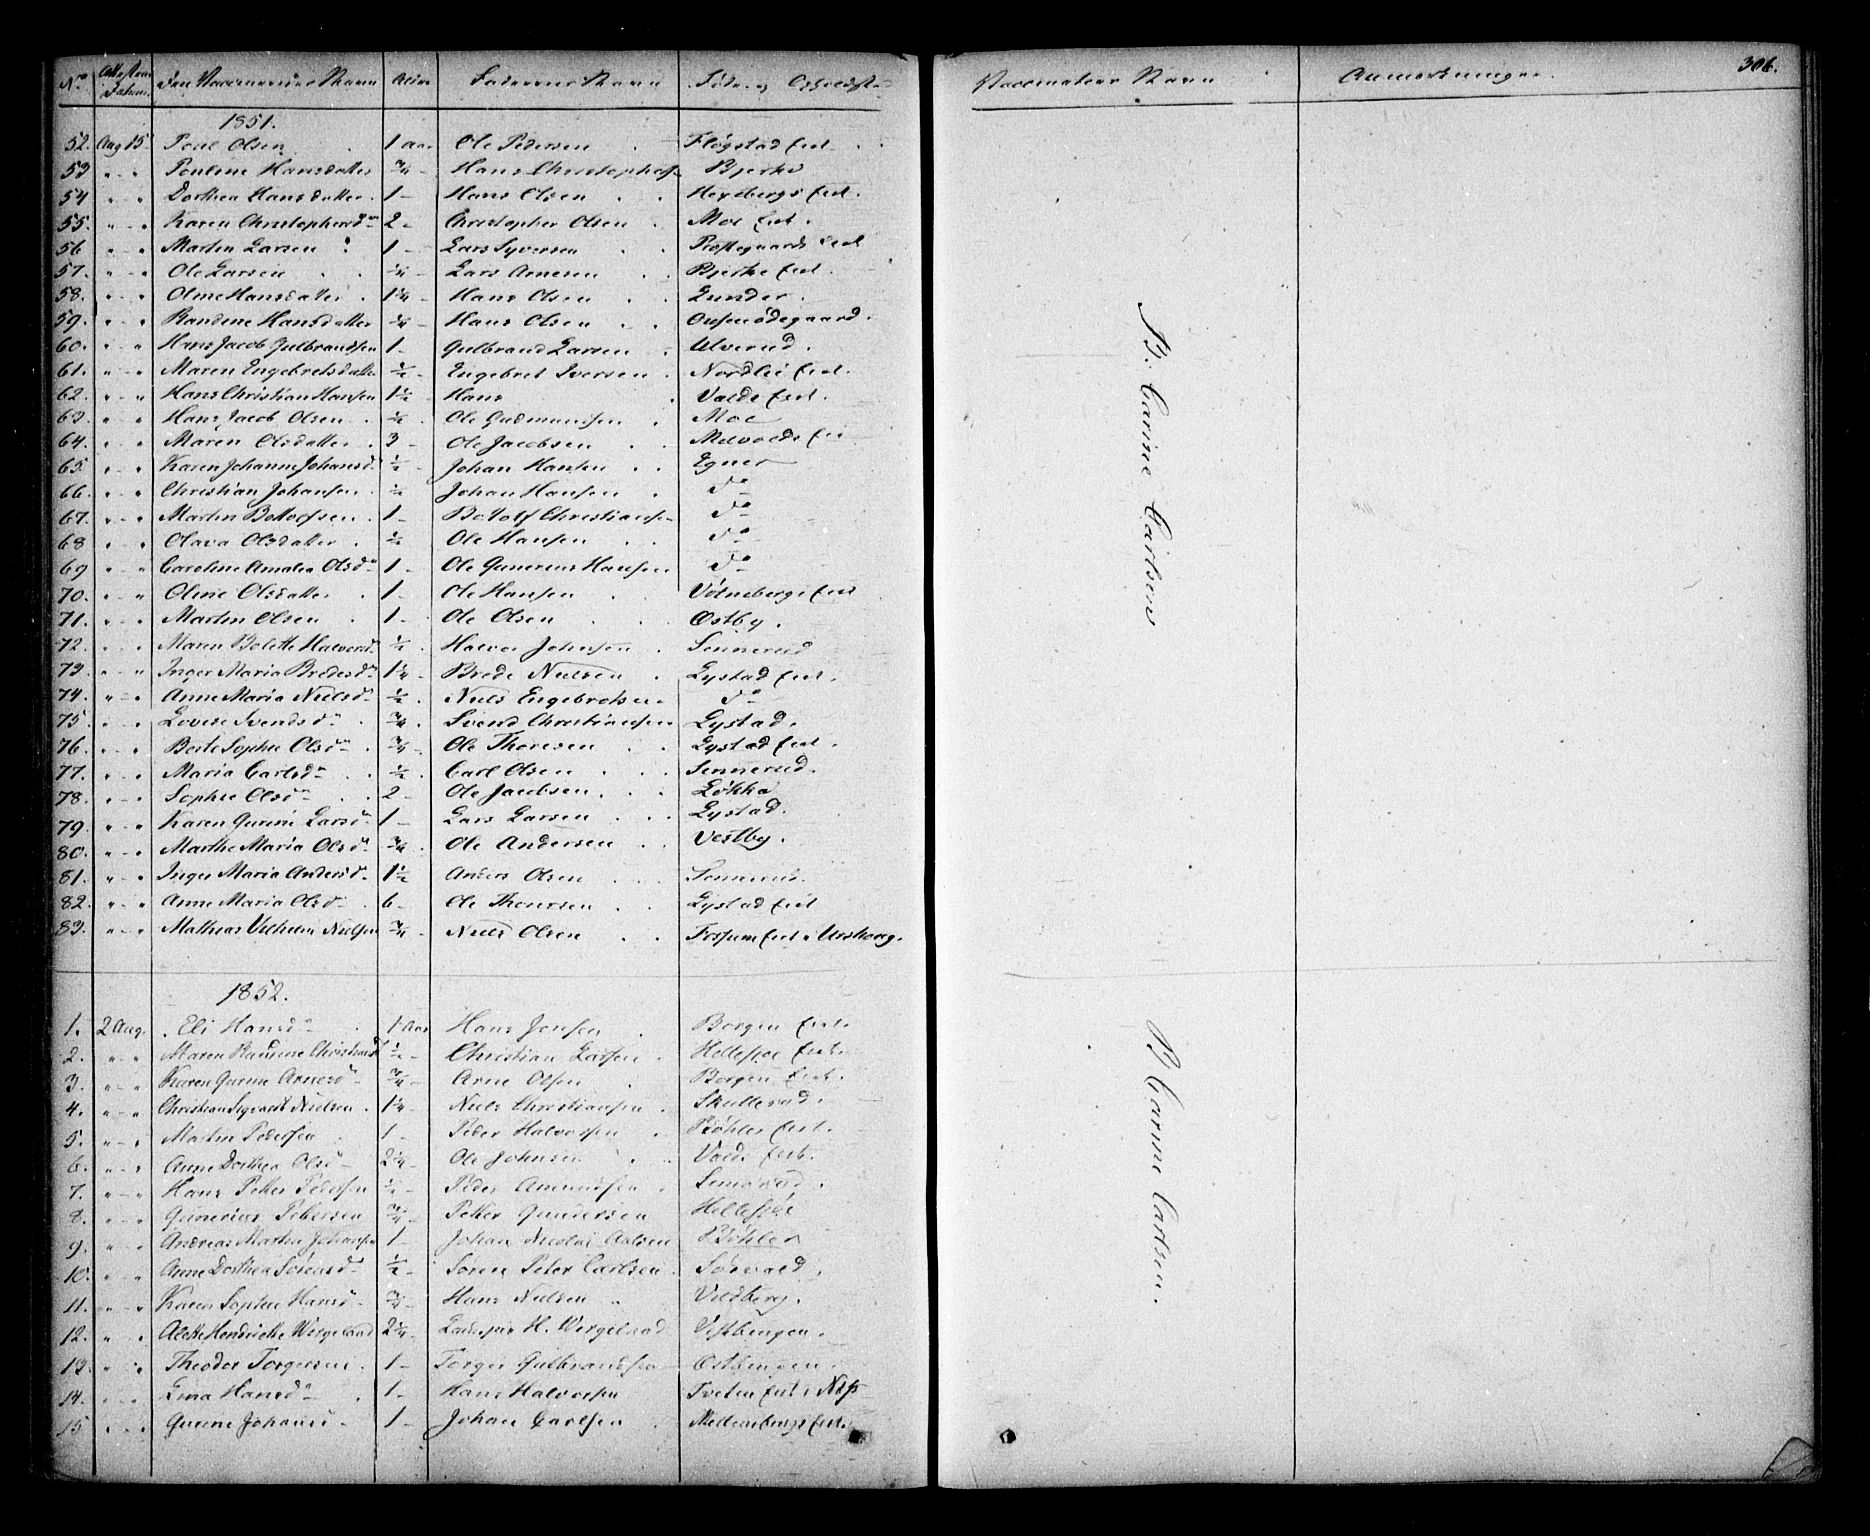 No Attestens Datum. Den Vaccineredes Navn Alder Faderens Navn Føde- og Opholdsste
1851.
52. Aug 15 Poul Olsen 1 Aar Ole Pedersen Fløgstad Eiet
53 " - " Pauline Hansdatter 3/4 - Hans Christophers Bjerke
54 " - " Dorthea Hansdatter. 1 - Hans Olsen Hexebergs Eiet.
55. " - " Karen Christophersd 2 - Christopher Olsen Moe Eiet.
56 " - " Martin Larsen 1 - Lars Syversen Præstegaards Eiet
57. " - " Ole Larsen 1/4 - Lars Arnesen Bjerke Eiet.
58. " - " Oline Hansdatter 1 1/4 - Hans Olsen Lunder.
59. " - " Randine Hansdatter 1/4 - Hans Olsen Ousenødegaard.
60. " - " Hans Jacob Gulbrandsen 1 - Gulbrand Larsen Ulverud.
61. " - " Maren Engebretsdatter 1/2 - Engebret Iversen Nordlie Eiet.
62. " - " Hans Christian Hansen 1 1/2 - Hans Valde Eiet.
63. " - " Hans Jacob Olsen 1/2 Ole Gudmundsen Moe
64. " - " Maren Olsdatter 3 - Ole Jacobsen Melvolds Eie
65. " - " Karen Johanne Johansd 1/2 - Johan Hansen Egner
66. " - " Christian Johansen 1/2 Johan Hansen Do
67. " - " Martin Botolfsen 1 - Botolf Christiansen Do
68 " - " Olava Olsdatter 1/2 Ole Hansen Do
69 " - " Caroline Amalia Olsd 1 - Ole Gunerius Hansen Do
70. " - " Oline Olsdatter 1 - Ole Hansen Vølnebergs Eiet
71. " - " Martin Olsen 1 - Ole Olsen Østby.
72. " - " Maren Bolette Halvorsd 1/2 Halvor Johnsen Sennerud
73. " - " Inger Maria Bredesd 1 1/4 - Brede Nielsen Lystad Eiet.
74. " - " Anne Maria Nielsd 1/2 Niels Engebretsen Do
75. " - " Lovise Svendsd 3/4 Svend Christiansen Lystad.
76. " - " Berte Sophie Olsd 3/4 - Ole Thoresen Lystad Eiet.
77. " - " Maria Carlsd 1/2 Carl Olsen Sennerud.
78. " - " Sophie Olsd 2 - Ole Jacobsen Løkka
79. " - " Karen Gurine Larsd 1 - Lars Larsen Lystad.
80. " - " Marthe Maria Olsd 3/4 Ole Andersen Vestby.
81. " - " Inger Maria Andersd 1 1/2 Anders Olsen Sennerud.
82. " - " Anne Maria Olsd 6 - Ole Thoresen Lystad Eiet
83. " - " Mathias Vilhelm Nielsen 3/4 - Niels Olsen Fossum Eiet i Urskoug.
1852.
1. 2 Aug. Eli Hansd 1 Aar Hans Jensen Borgen Eiet.
2. " - " Maren Randine Christiansd 1/2 - Christian Larsen Hellesøe Eiet.
3. " - " Karen Gurine Arnesd 3/4 - Arne Olsen Borgen Eiet.
4. " - " Christian Sigvardt Nielsen 1 1/4 - Niels Christiansen Skullerud.
5. " - " Martin Pedersen 1 - Peder Halvorsen Bøhler Eiet.
6. " - " Anne Dorthea Olsd 2 1/4 - Ole Johnsen Valde Eiet.
7. " - " Hans Petter Pedersen 1/2 - Peder Amundsen
8. " - " Gunerius Pettersen 3/4 - Petter Gundersen Hellesøe
9. " - " Andreas Martin Johansen 1 - Johan Nicolai Bøhler
10. " - " Anne Dorthea Sørensd 1/2 Søren Peter Carlsen Sørvald.
11. " - " Karen Sophie Hansd 3/4 - Hans Nielsen Vildberg.
12. " - " Alette Hendrikke Wergeland 2 1/4 - H. Wergeland Vestbingen.
13. " - " Theodor Torgersen 1 - Torger Gulbrandsen Østbingen.
14. " - " Lina Hansd 1 - Hans Halvorsen Tveten Eiet i Næs
15 " - " Gurine Johansd 1 - Johan Carlsen Mellembergs Eiet.
Vaccinateur Navn Anmærkninger. 306.
B: Carine Carlsen
B: Carine Carlsen.